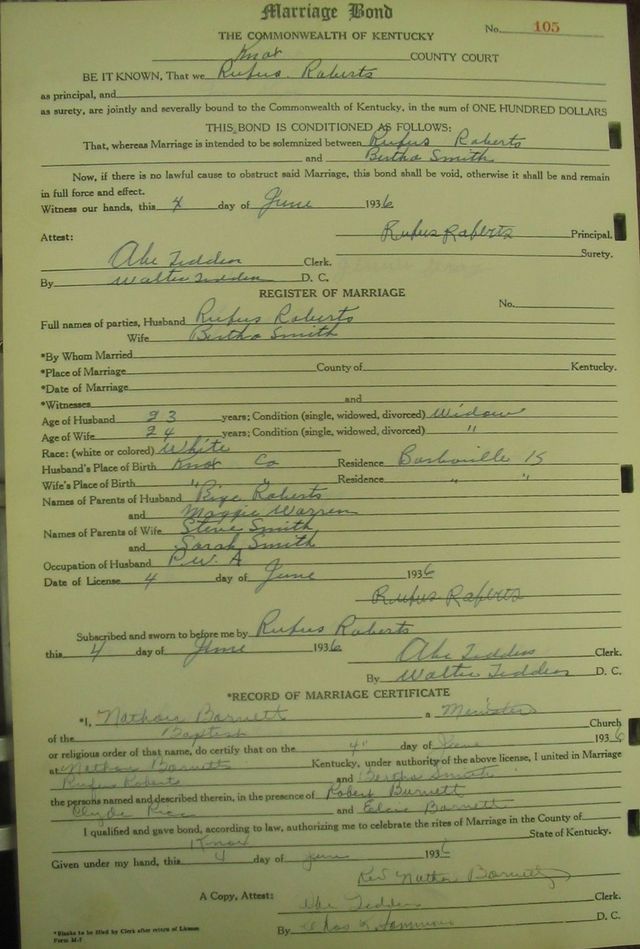 Marriage Bond
No. 105
THE COMMONWEALTH OF KENTUCKY
Knox COUNTY COURT
BE IT KNOWN, That we Rufus Roberts
as principal, and
as surety, are jointly and severally bound to the Commonwealth of Kentucky, in the sum of ONE HUNDRED DOLLARS
THIS BOND IS CONDITIONED AS FOLLOWS:
That, whereas Marriage is intended to be solemnized between Rufus Roberts
and Bertha Smith
Now, if there is no lawful cause to obstruct said Marriage, this bond shall be void, otherwise it shall be and remain
in full force and effect.
Witness our hands, this 4 day of June 1936
Rufus Roberts Principal.
Attest: Surety.
Abe Tedders Clerk.
By Walter Tedders D. C.
REGISTER OF MARRIAGE
No.
Full names of parties, Husband Rufus Roberts
Wife Bertha Smith
*By Whom Married
*Place of Marriage County of Kentucky.
*Date of Marriage
*Witnesses and
Age of Husband 23 years; Condition (single, widowed, divorced) Widow
Age of Wife 24 years; Condition (single, widowed, divorced) "
Race: (white or colored) White
Husband's Place of Birth Knox Co Residence Barbville
Wife's Place of Birth " " Residence " "
Names of Parents of Husband Roberts
and Maggie Warren
Names of Parents of Wife Steve Smith
and Sarah Smith
Occupation of Husband P. W. A
Date of License 4 day of June 1936
Rufus Roberts
Subscribed and sworn to before me by Rufus Roberts
this 4 day of June 1936 Abe Tedders Clerk.
By Walter Tedders D. C.
*RECORD OF MARRIAGE CERTIFICATE
*I, Nathan Barnett a Minister
of the Baptist Church
or religious order of that name, do certify that on the 4" day of June 1936
at Nathan Barnetts Kentucky, under authority of the above license, I united in Marriage
Rufus Roberts and Bertha Smith
the persons named and described therein, in the presence of Robert Burnett
Clyde and Elsie Barnett
I qualified and gave bond, according to law, authorizing me to celebrate the rites of Marriage in the County of
Knox State of Kentucky.
Given under my hand, this 4 day of June 1936
Rev Nathan Barnett
A Copy, Attest: Abe Tedders Clerk.
By D. C.
*Blanks to be filled by Clerk after return of License
Form M-7